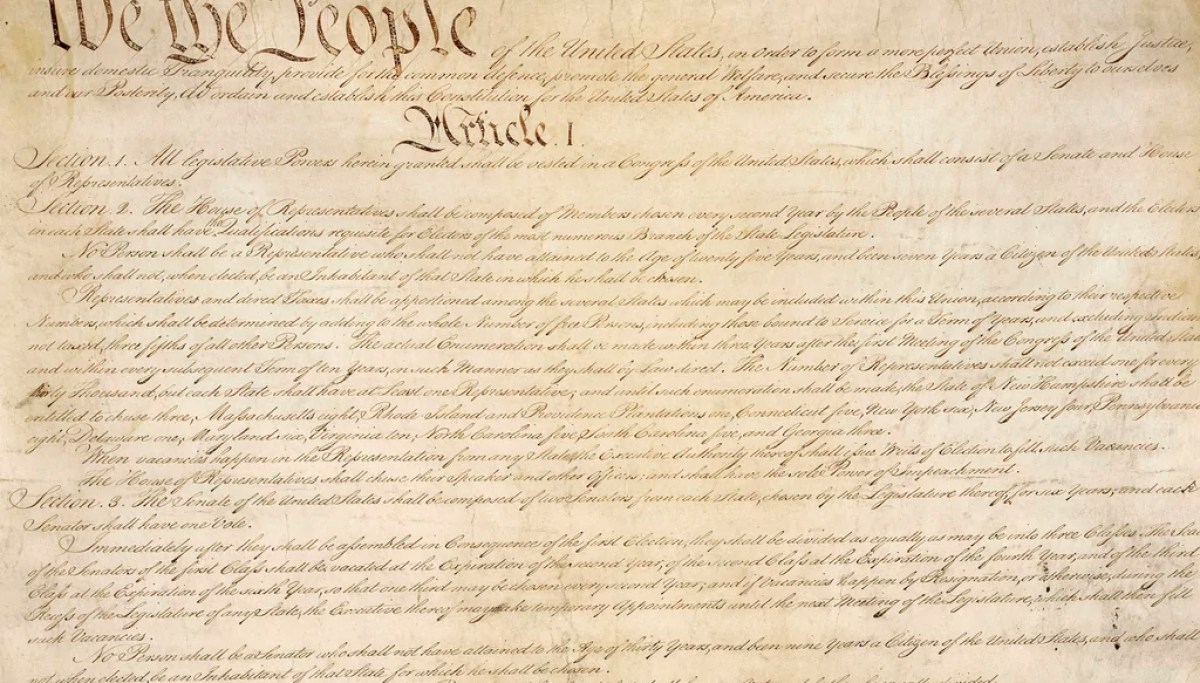 We the People of the United States, in Order to form a more perfect Union, establish Justice,
insure domestic Tranquility, provide for the common defence, promote the general Welfare, and secure the Blessings of Liberty to ourselves
and our Posterity, do ordain and establish this Constitution for the United States of America.
Article. I.
Section. 1. All legislative Powers herein granted shall be vested in a Congress of the United States, which shall consist of a Senate and House
of Representatives.
Section. 2. The House of Representatives shall be composed of Members chosen every second Year by the People of the several States, and the Electors
in each State shall have the Qualifications requisite for Electors of the most numerous Branch of the State Legislature.
No Person shall be a Representative who shall not have attained to the Age of twenty five Years, and been seven Years a Citizen of the United States,
and who shall not, when elected, be an Inhabitant of that State in which he shall be chosen.
Representatives and direct Taxes shall be apportioned among the several States which may be included within this Union, according to their respective
Numbers, which shall be determined by adding to the whole Number of free Persons, including those bound to Service for a Term of Years, and excluding Indians
not taxed, three fifths of all other Persons. The actual Enumeration shall be made within three Years after the first Meeting of the Congress of the United States,
and within every subsequent Term of ten Years, in such Manner as they shall by Law direct. The Number of Representatives shall not exceed one for every
thirty Thousand, but each State shall have at Least one Representative; and until such enumeration shall be made, the State of New Hampshire shall be
entitled to chuse three, Massachusetts eight, Rhode-Island and Providence Plantations one, Connecticut five, New-York six, New Jersey four, Pennsylvania
eight, Delaware one, Maryland six, Virginia ten, North Carolina five, South Carolina five, and Georgia three.
When vacancies happen in the Representation from any State, the Executive Authority thereof shall issue Writs of Election to fill such Vacancies.
The House of Representatives shall chuse their Speaker and other Officers; and shall have the sole Power of Impeachment.
Section. 3. The Senate of the United States shall be composed of two Senators from each State, chosen by the Legislature thereof, for six Years; and each
Senator shall have one Vote.
Immediately after they shall be assembled in Consequence of the first Election, they shall be divided as equally as may be into three Classes. The Seats
of the Senators of the first Class shall be vacated at the Expiration of the second Year, of the second Class at the Expiration of the fourth Year, and of the third
Class at the Expiration of the sixth Year, so that one third may be chosen every second Year; and if Vacancies happen by Resignation, or otherwise, during the
Recess of the Legislature of any State, the Executive thereof may make temporary Appointments until the next Meeting of the Legislature, which shall then fill
such Vacancies.
No Person shall be a Senator who shall not have attained to the Age of thirty Years, and been nine Years a Citizen of the United States, and who shall
not, when elected, be an Inhabitant of that State for which he shall be chosen.